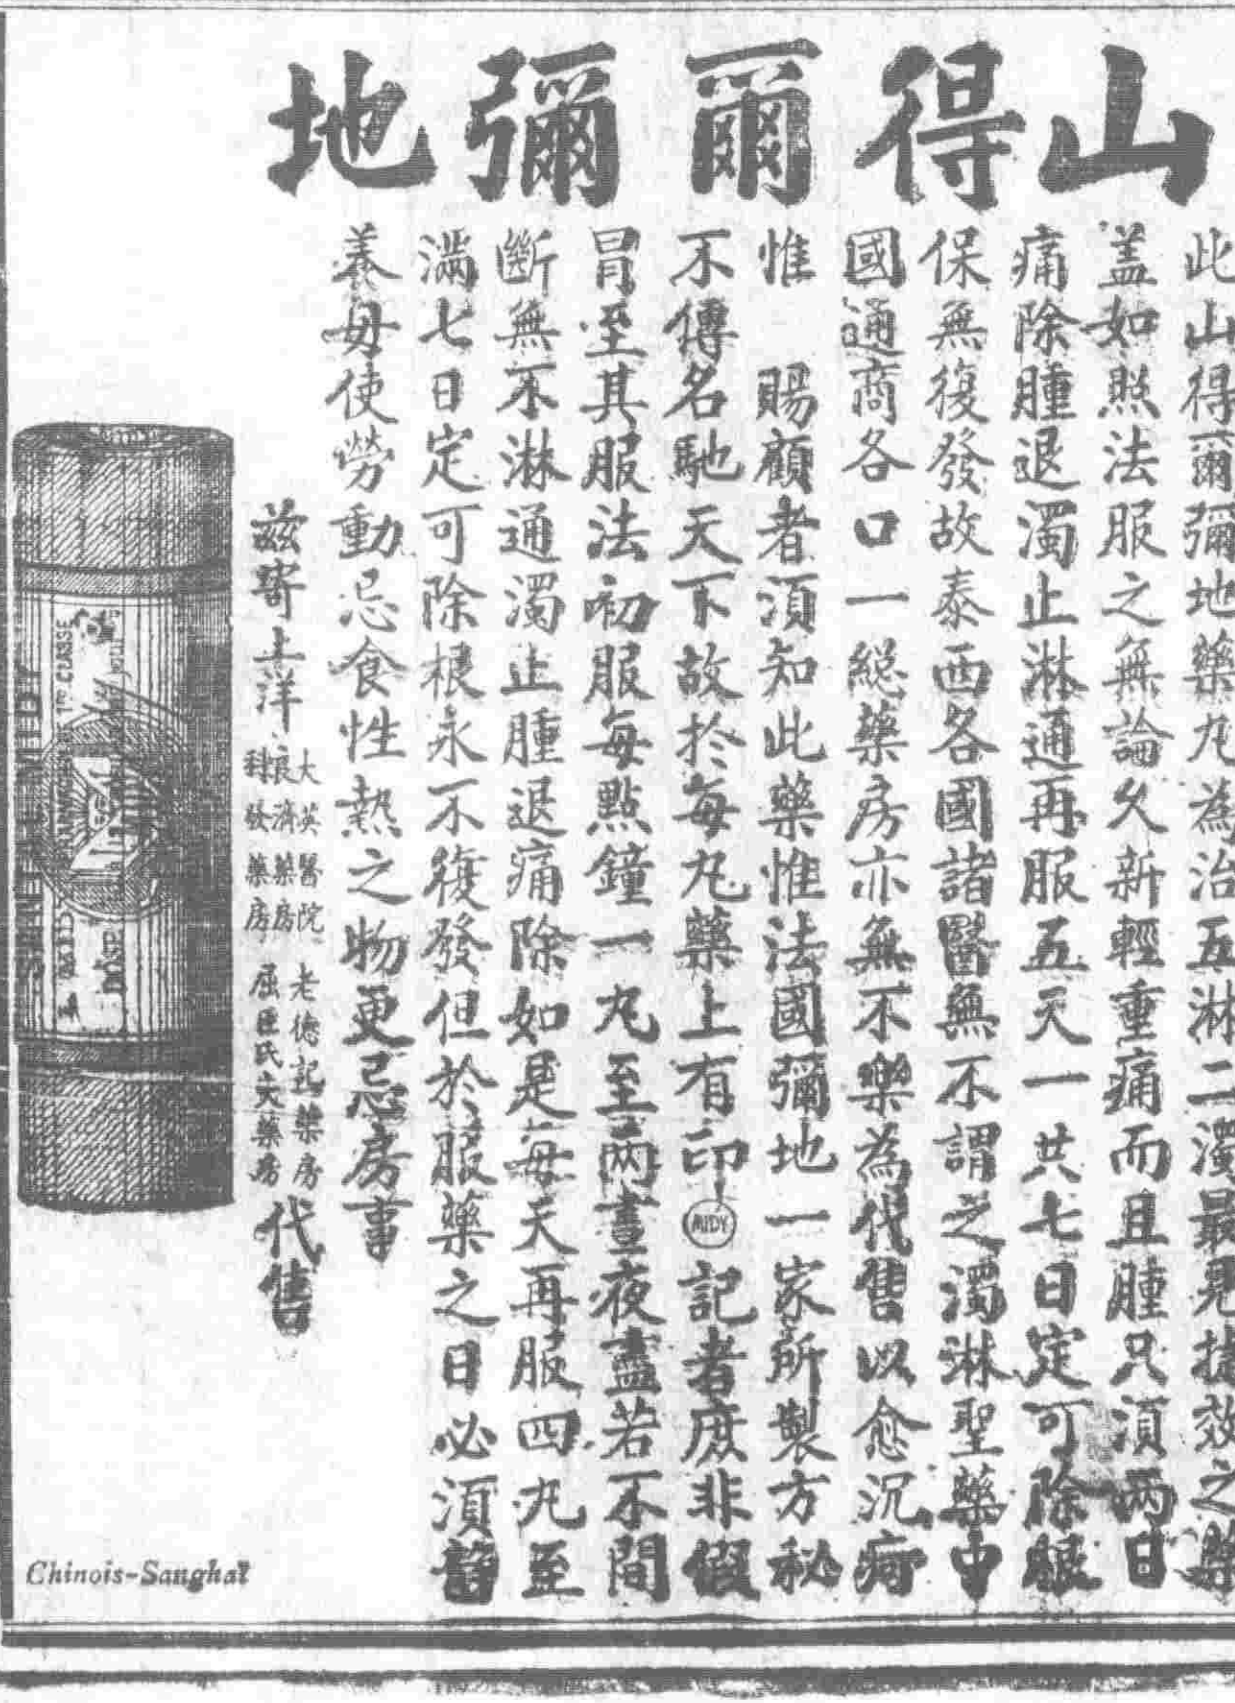 山得爾彌地
此山得爾彌地藥丸為治五淋二濁最見捷效之藥
盖如照法服之無論久新輕重痛而且腫只湏兩日
痛除腫退濁止淋通再服五天一共七日定可除根
保無復發故泰西各國諸醫無不謂之濁淋聖藥中
國通商各口一總藥房亦無不樂為代售以愈沉疴
惟 賜顧者湏知此藥惟法國彌地一家所製方秘
不傳名馳天下故於每丸藥上有印MIDY記者庶非假
冐至其服法初服每點鐘一丸至兩晝夜盡若不間
斷無不淋通濁止腫退痛除如是每天再服四丸至
滿七日定可除根永不復發但於服藥之日必湏靜
養毋使勞動忌食性熱之物更忌房事
茲寄上洋
大英醫院 老德記藥房
良濟藥房 屈臣氏大藥房
科發藥房
代售
MIDY
PHARMACIEN DE 1RE CLASSE
Chinois-Sanghaï